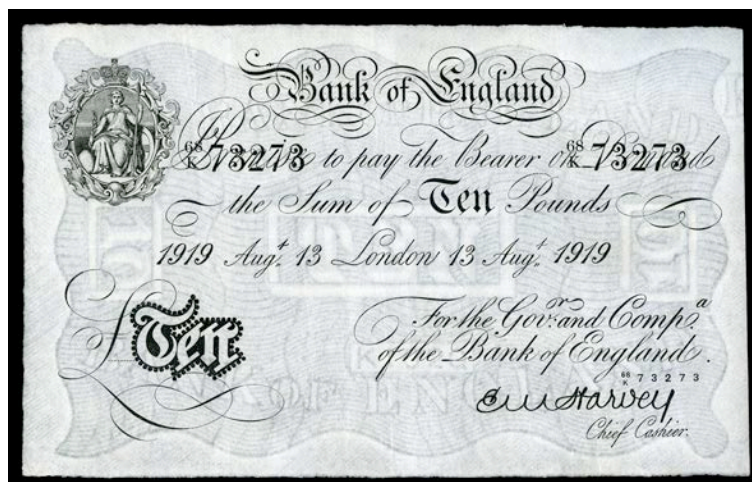 Bank of England
68/K 73273 68/K 73273
I Promise to pay the Bearer on Demand
the Sum of Ten Pounds
1919 Augt. 13 London 13 Augt. 1919
£Ten
For the Govr. and Compa.
of the Bank of England.
68/K 73273
E M Harvey
Chief Cashier.